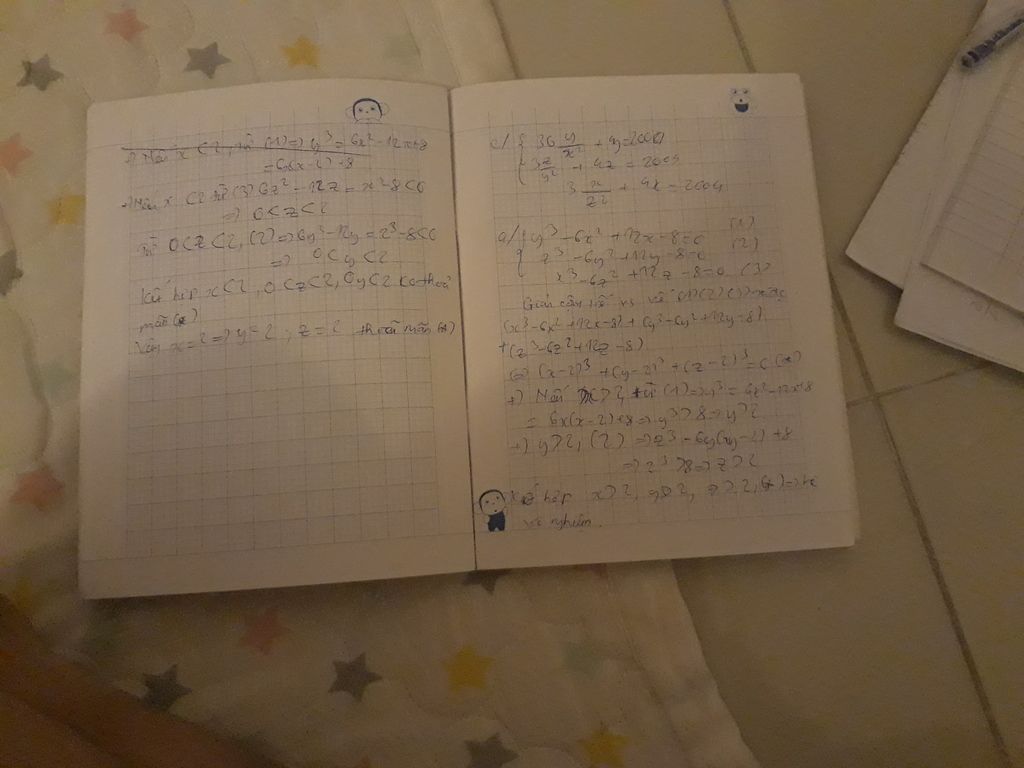 +) Nếu x < 2, từ (1) => y³ = 6x² - 12x + 8
= 6x(x-2) + 8
+) Nếu x < 2 từ (3) 6z² - 12z = x³ - 8 < 0
=> 0 < z < 2
từ 0 < z < 2, (2) => 6y² - 12y = z³ - 8 < 0
=> 0 < y < 2
Kết hợp x < 2, 0 < z < 2, 0 < y < 2
mãn (*)
Vậy x = 2 => y = 2 ; z = 2 thoả mãn (*)
c/ { 36 y/x² + 4y = 2004
3 z/y² + 4z = 2004
3 x/z² + 4x = 2004
a/ { y³ - 6x² + 12x - 8 = 0 (1)
z³ - 6y² + 12y - 8 = 0 (2)
x³ - 6z² + 12z - 8 = 0 (3)
vế (1) (2) (3)
(x³ - 6x² + 12x - 8) + (y³ - 6y² + 12y - 8)
+ (z³ - 6z² + 12z - 8)
(=) (x-2)³ + (y-2)³ + (z-2)³ = 0 (*)
+) Nếu x > 2, từ (1) => y³ = 6x² - 12x + 8
= 6x(x-2) + 8 => y³ > 8 => y > 2
+) y > 2, (2) => z³ - 6y(y-2) + 8
=> z³ > 8 => z > 2
Kết hợp x > 2, y > 2, z > 2, (*) => hệ
vô nghiệm.